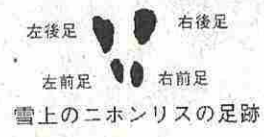 左後足 右後足
左前足 右前足
雪上のニホンリスの足跡